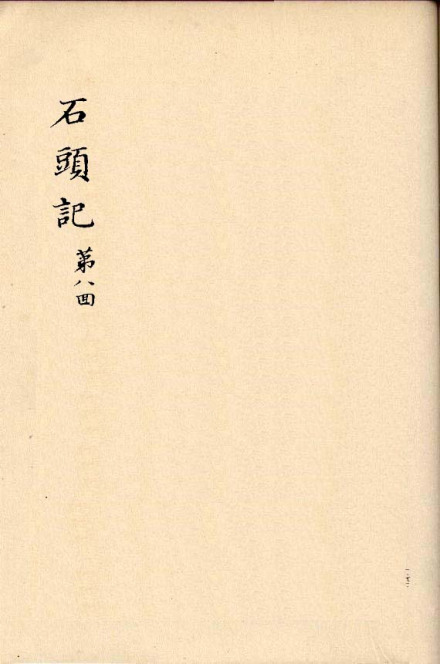 石頭記
第八回